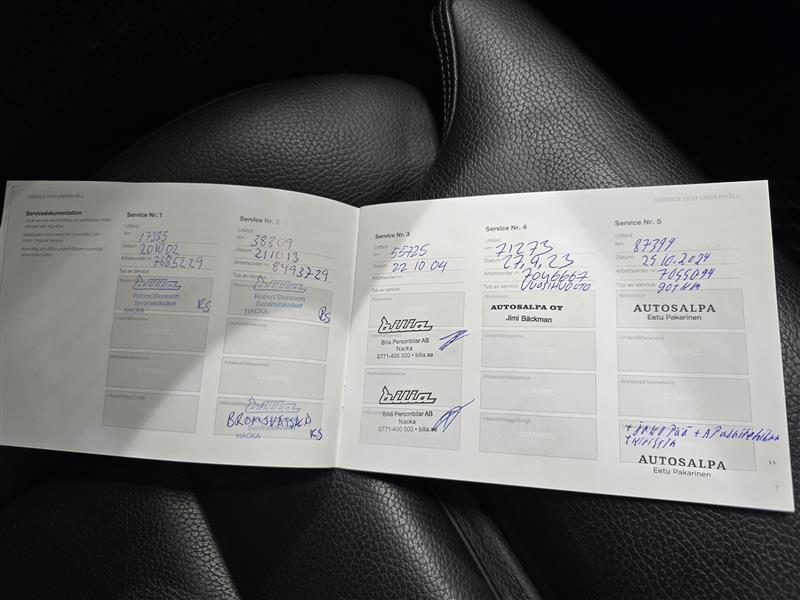 SERVICE OCH UNDERHÅLL
Servicedokumentation
Service Nr. 1
Utförd
km 17385
Datum 201002
Arbetsorder nr. 7685229
Typ av service
Basservice
bilia
Robert Stensson
Servicetekniker
NACKA RS
Underhållsservice
STÄMPEL
Anpassad basservice
STÄMPEL
Intervallägg/Övrigt
Service Nr. 2
Utförd
km 38309
Datum 211013
Arbetsorder nr. 8493729
Typ av service
bilia
Robert Stensson
Servicetekniker
NACKA RS
Underhållsservice
STÄMPEL
Anpassad basservice
STÄMPEL
bilia
BROMSVÄTSKA
Servicetekniker
NACKA RS
Service Nr. 3
Utförd
km 55725
Datum 22 10 04
Arbetsorder nr.
Typ av service
Basservice
bilia
Bilia Personbilar AB
Nacka
0771-400 000 • bilia.se
Anpassad basservice
bilia
Bilia Personbilar AB
Nacka
0771-400 000 • bilia.se
SERVICE OCH UNDERHÅLL
Service Nr. 4
Utförd
km 71273
Datum 27.9.23
Arbetsorder nr. 7046667
Typ av service VUOSIHUOLTO
Basservice
AUTOSALPA OY
Jimi Bäckman
Underhållsservice
STÄMPEL
Anpassad basservice
STÄMPEL
Intervallägg/Övrigt
STÄMPEL
Service Nr. 5
Utförd
km 87399
Datum 25.10.2024
Arbetsorder nr. 7055094
Typ av service 90TKM
Basservice
AUTOSALPA
Eetu Pakarinen
Underhållsservice
STÄMPEL
Anpassad basservice
STÄMPEL
AUTOSALPA
Eetu Pakarinen
7